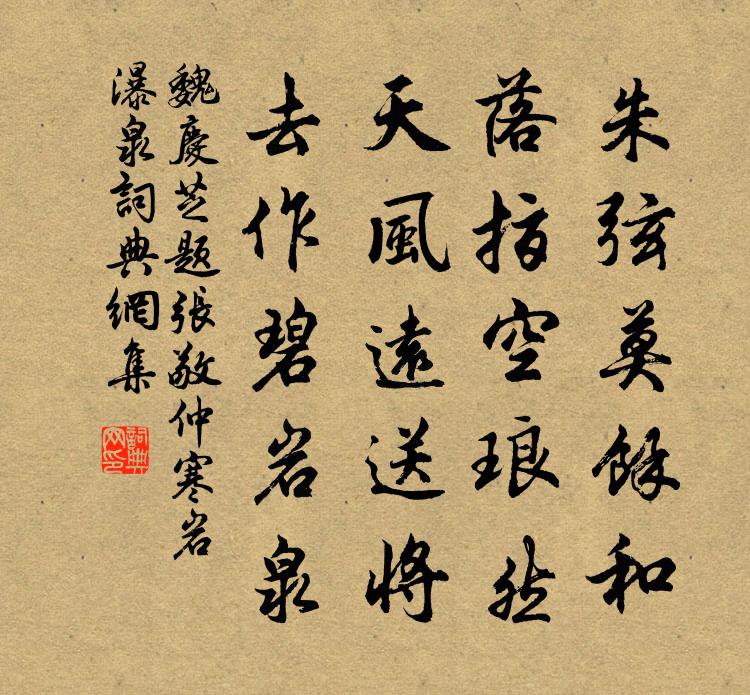 朱弦莫餘和
落指空琅然
天風遠送將
去作碧岩泉
魏慶芝題張敬仲寒岩
瀑泉詞典網集
詞典
网印